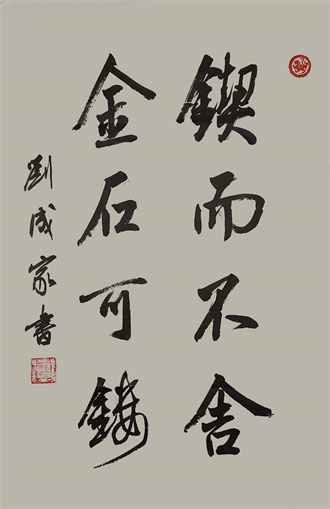 鍥而不舍
金石可鏤
劉成家書